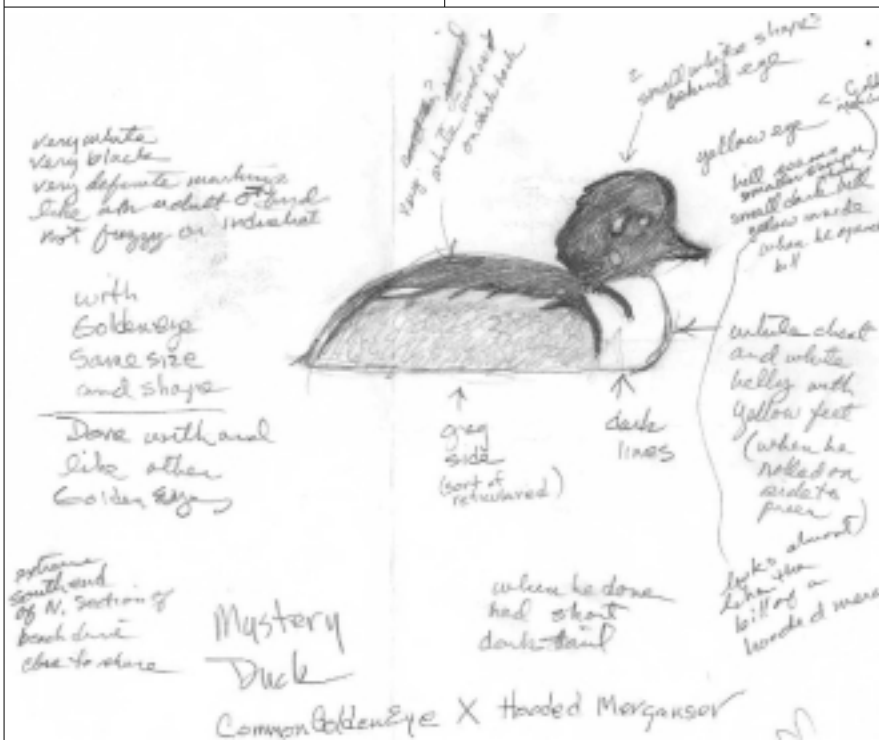 very white
very black
very definite markings
like an adult ♂ and
not fuzzy or indistinct
with
Goldeneye
same size
and shape
Dove with and
like other
Golden Eyes
extreme
south end
of N. section of
beach drive
close to shore
very white
on dark back
?
small white shape?
behind eye
yellow eye
bill seems
small dark bill
yellow inside
when he opened
bill
white chest
and white
belly with
yellow feet
(when he
rolled on
side to
preen)
looks almost
like the
bill of a
hooded merg
grey
side
(sort of
reticulated)
dark
lines
when he dove
had short
dark tail
Mystery
Duck
Common GoldenEye X Hooded Merganser